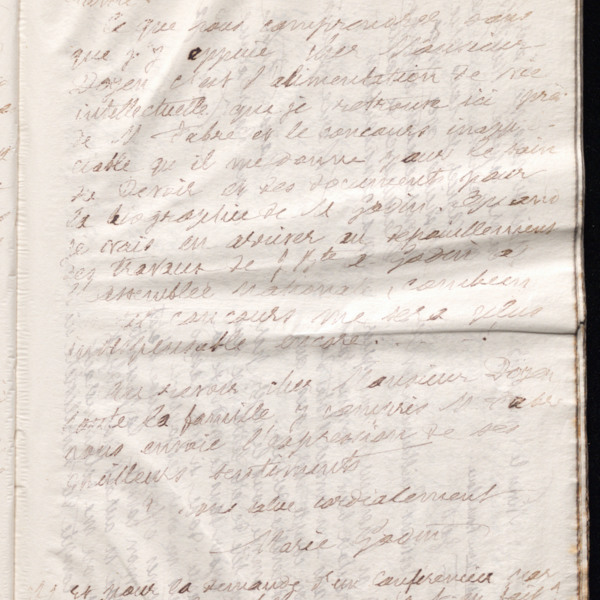 Ce que vous comprendrez dans
que j'y appuie cher Monsieur
Doyen c'est l'alimentation de vie
intellectuelle que je retrouve ici près
de M. Fabre et le concours inappré-
ciable qu'il me donne pour le soin
de Devoir et des documents pour
la biographie de M. Godin. Quand
je vais en arriver au dépouillement
des travaux de J. Bte A. Godin à
l'assemblée Nationale, combien
concours me sera plus
indispensable encore.
Au revoir cher Monsieur Doyen
toute la famille y compris M. Fabre
vous envoie l'expression de ses
meilleurs sentiments
vous salue cordialement
Marie Godin
Et pour la demande d'un Conférencier par